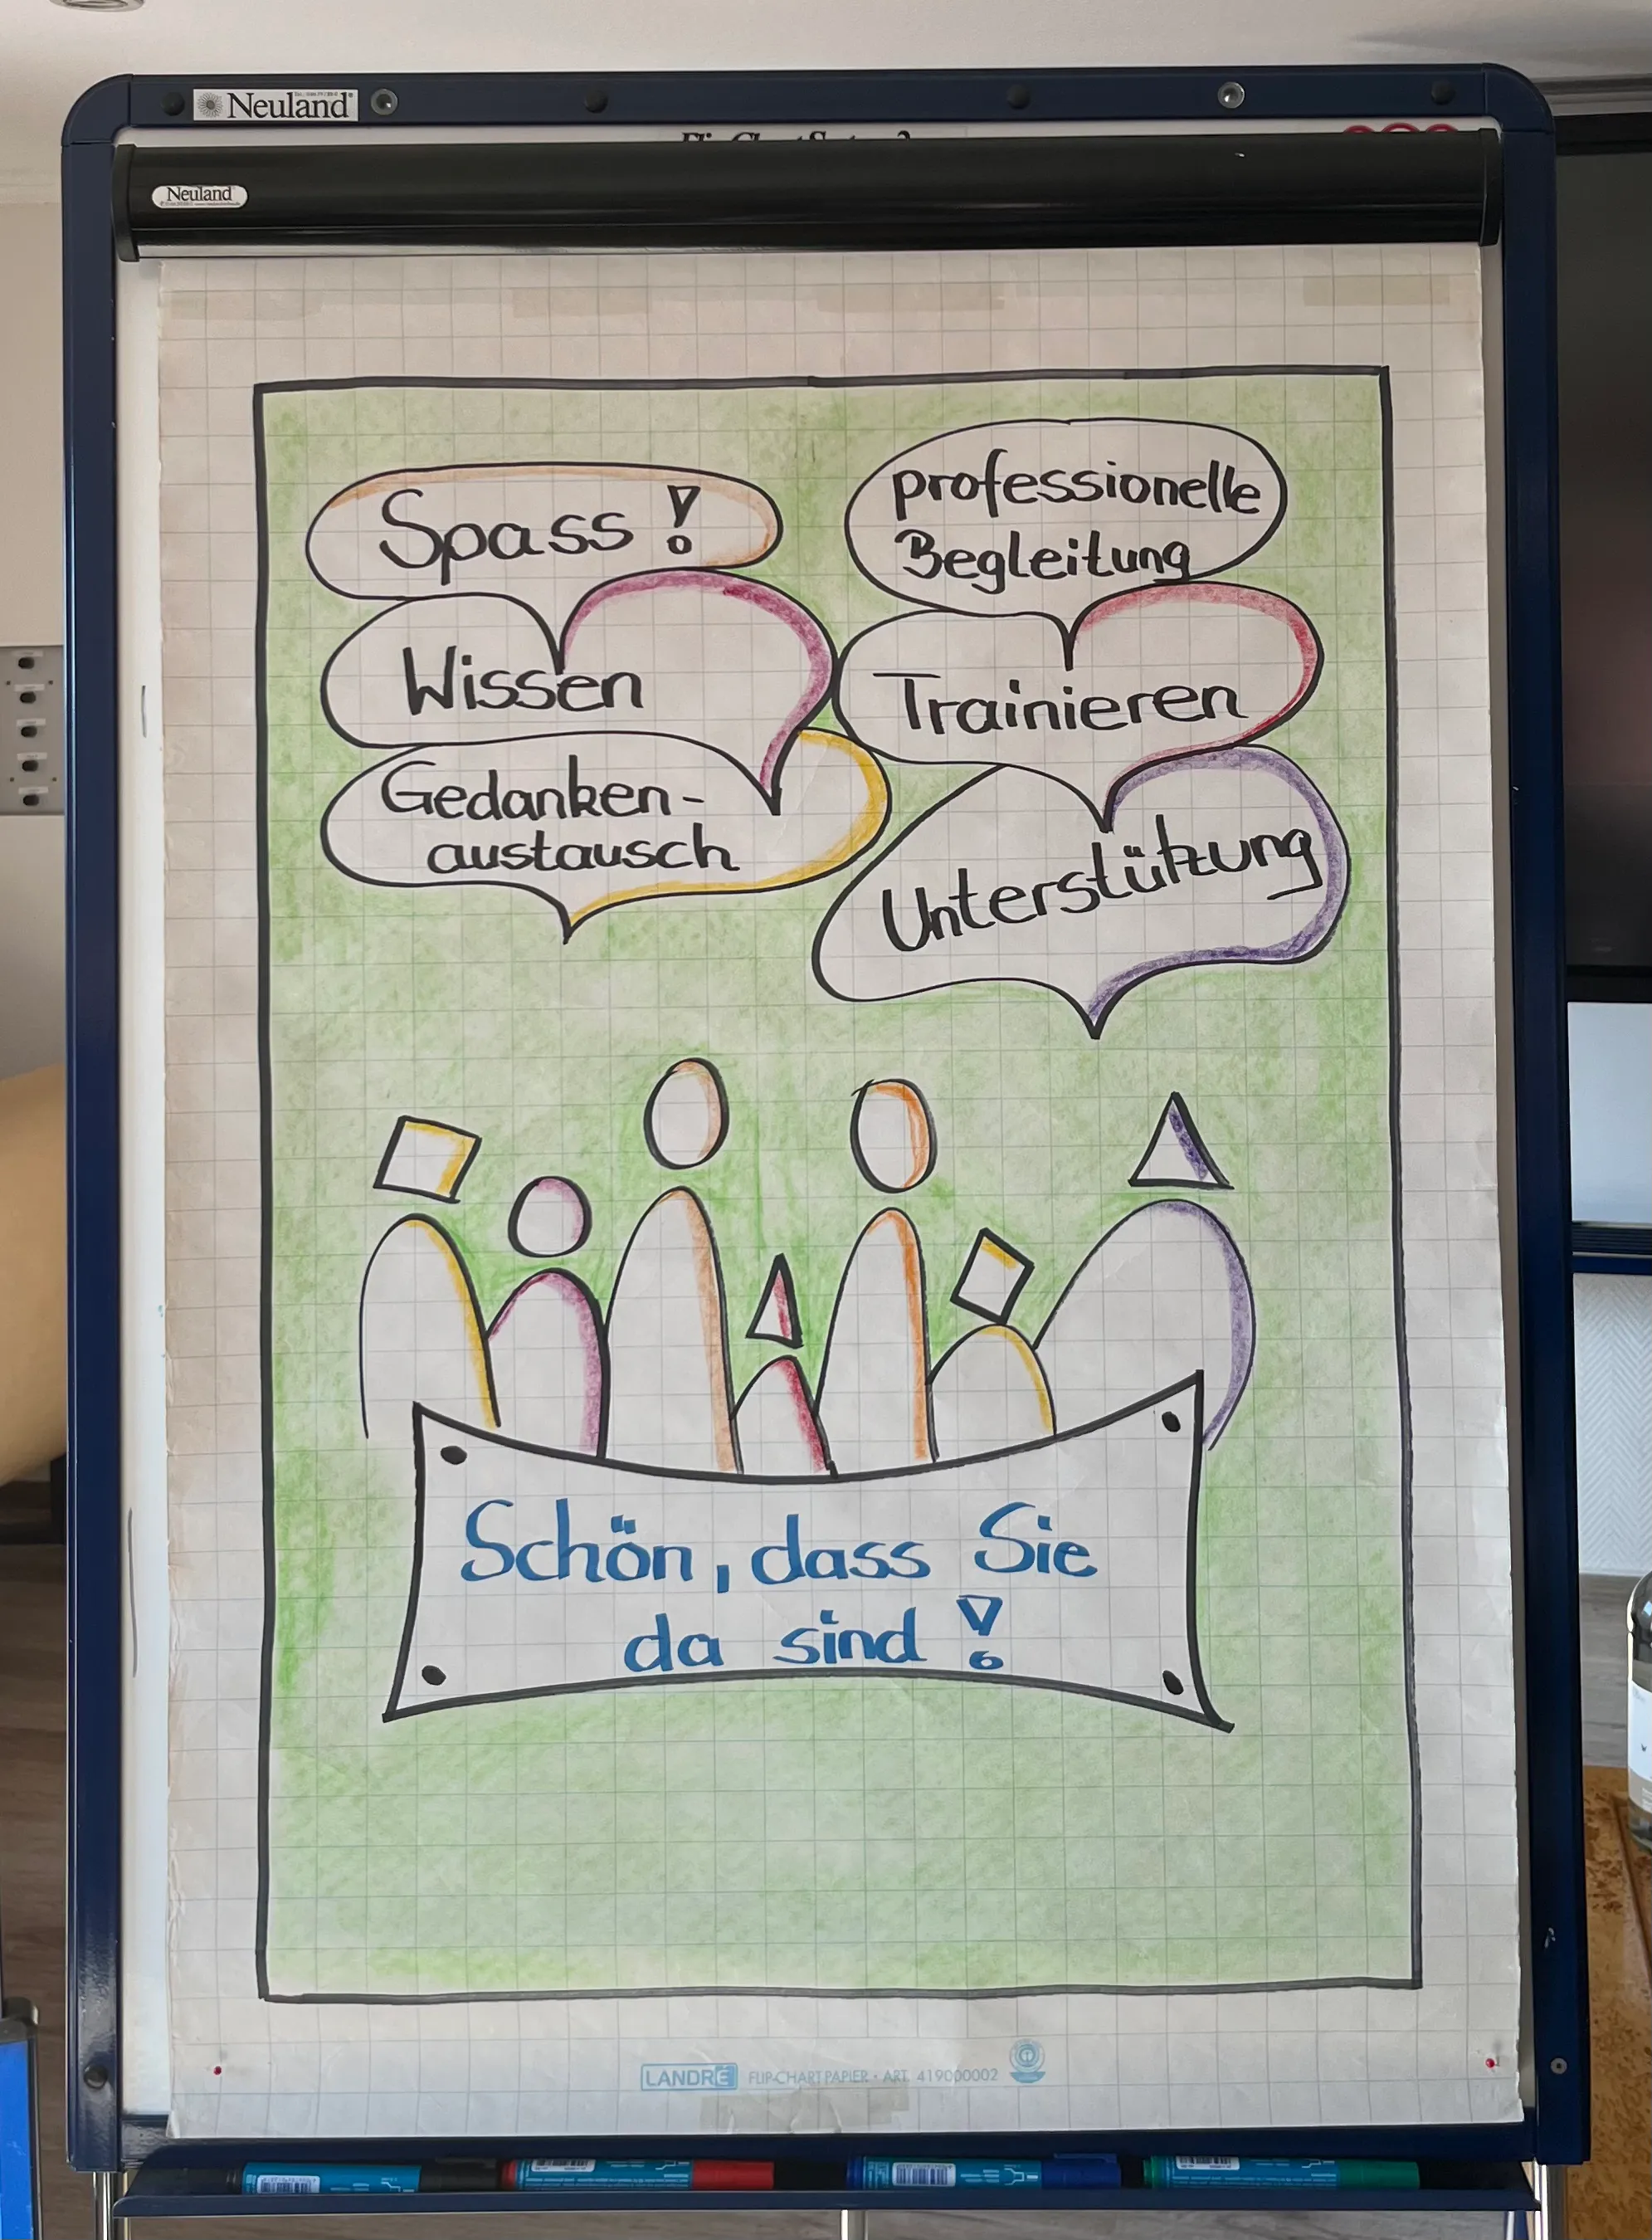 Neuland
Neuland
Spass!
professionelle
Begleitung
Wissen
Trainieren
Gedanken-
austausch
Unterstützung
Schön, dass Sie
da sind!
LANDRÉ FLIP-CHART PAPIER · ART. 419000002